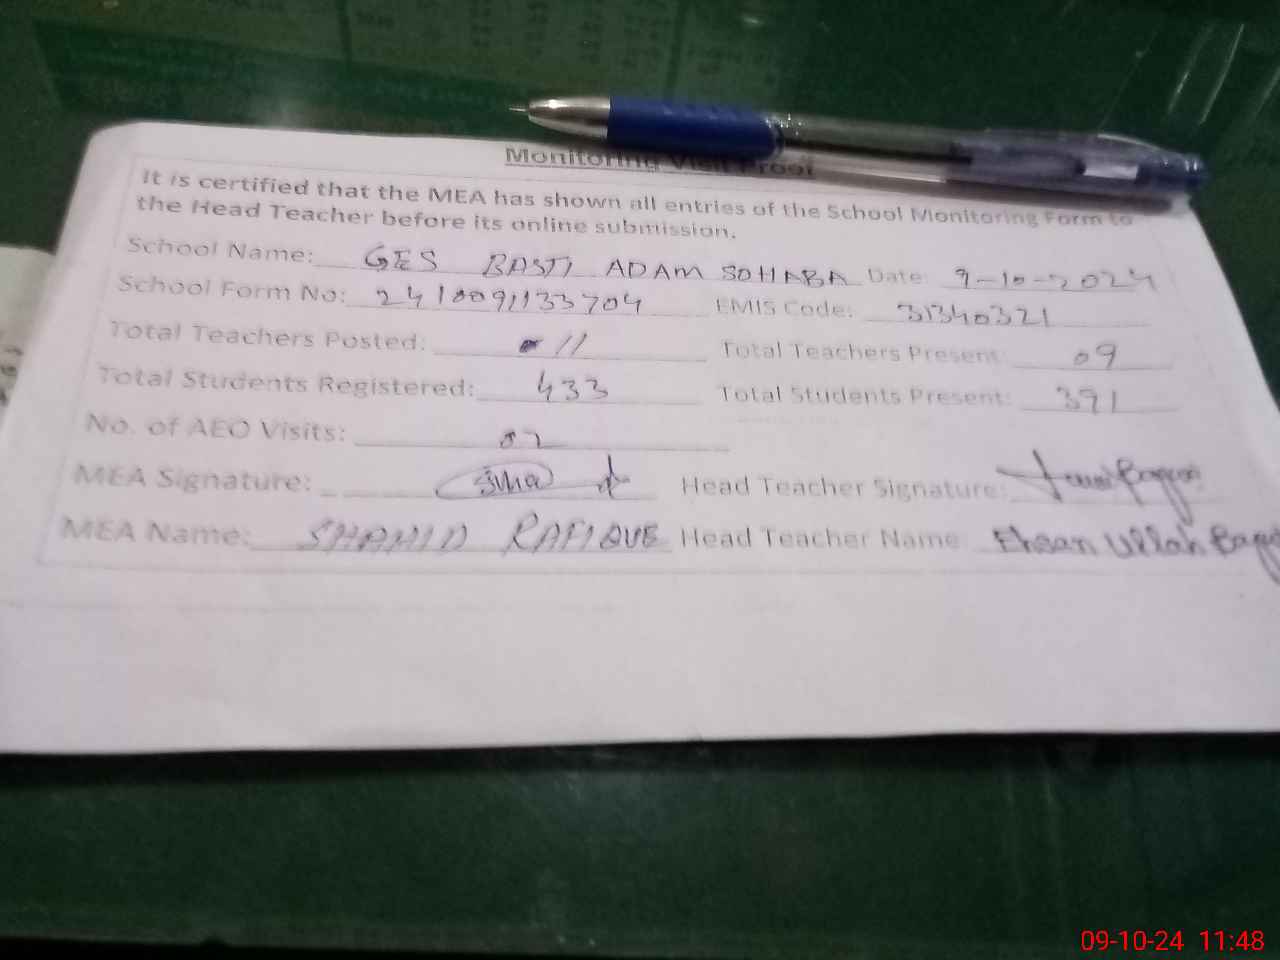 Monitoring Visit Proof
It is certified that the MEA has shown all entries of the School Monitoring Form to
the Head Teacher before its online submission.
School Name: GES BASTI ADAM SOHABA Date: 9-10-2024
School Form No: 2410091133704 EMIS Code: 31340321
Total Teachers Posted: 11 Total Teachers Present: 09
Total Students Registered: 433 Total Students Present: 391
No. of AEO Visits: 02
MEA Signature: Head Teacher Signature:
MEA Name: SHAHID RAFIQUE Head Teacher Name Ehsan Ullah
09-10-24 11:48